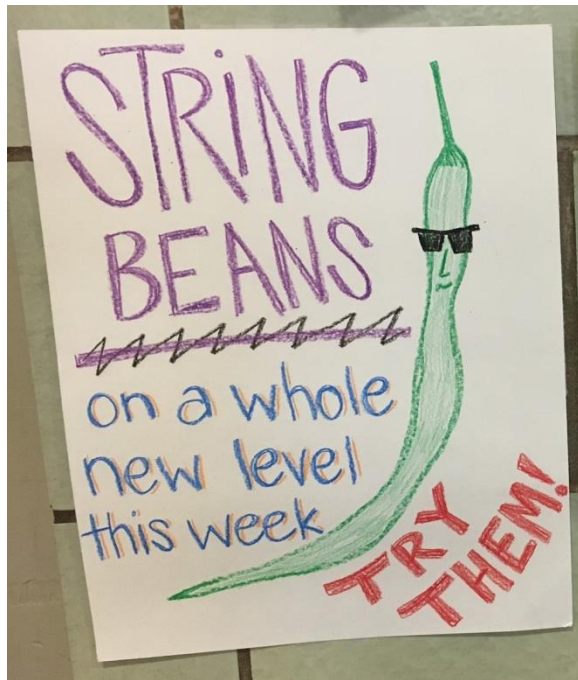 STRiNG
BEANS
on a whole
new level
this week
TRY
THEM!